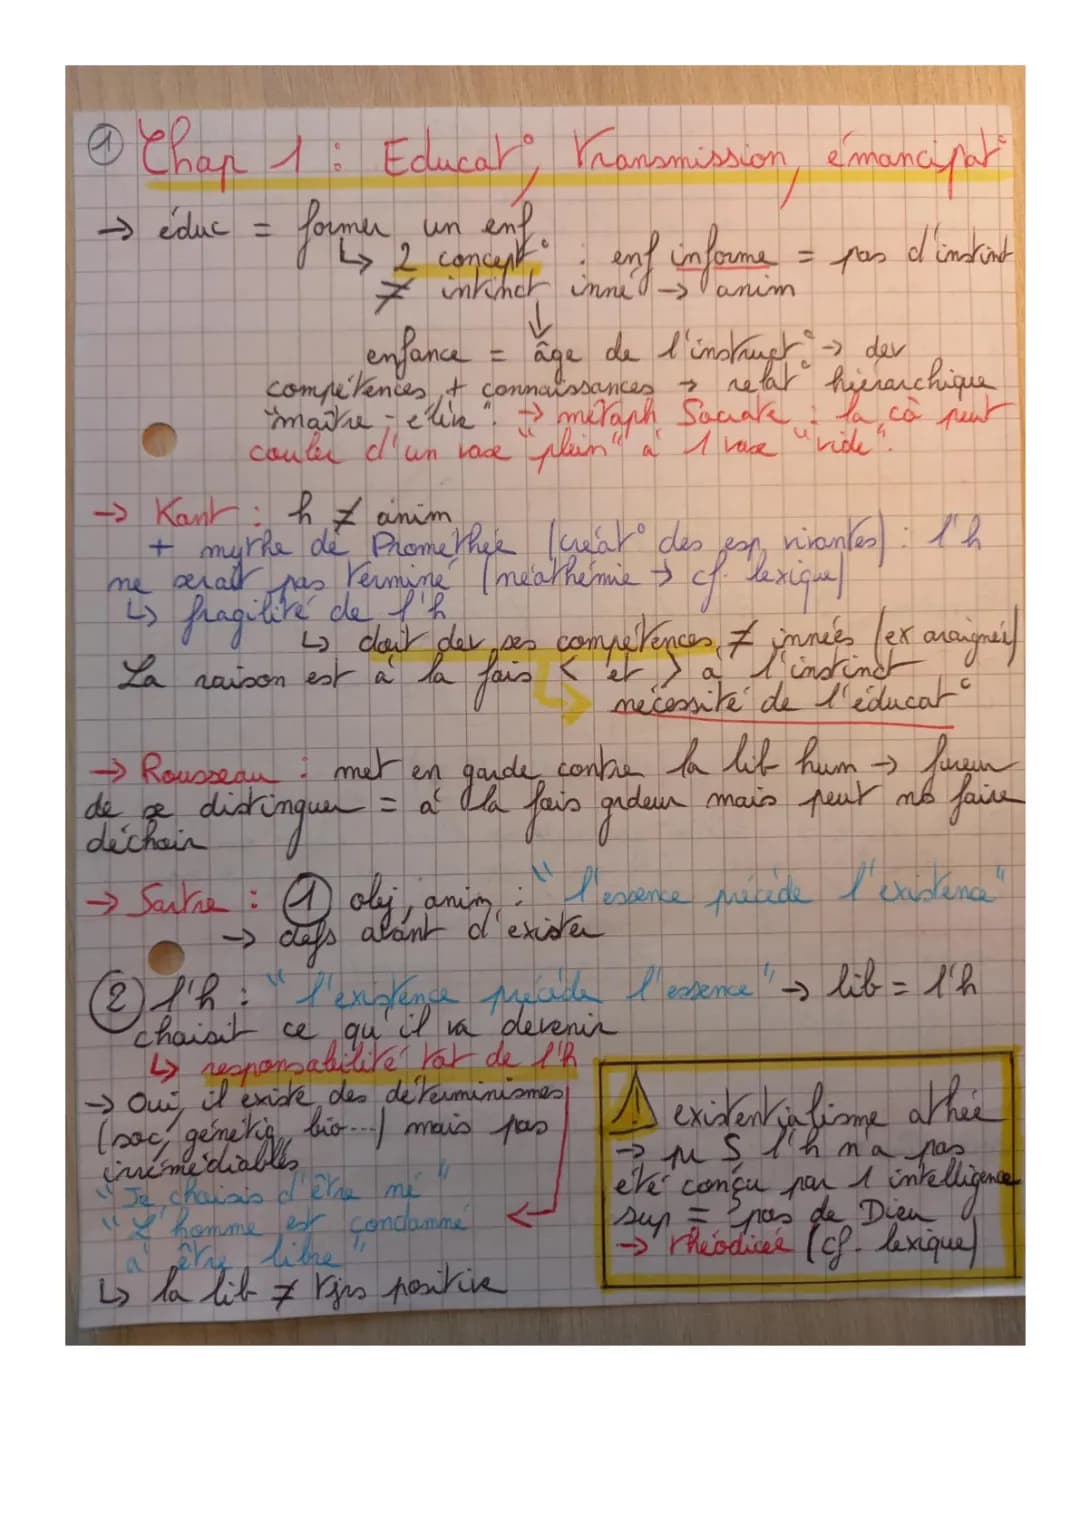 ① Chap 1 : Educat°, transmission, émancipat°
→ éduc = former un enf
↳ 2 concept° : enf informe = pas d'instinct
≠ intinct inné → anim
↓
enfance = âge de l'instruct° → dev
compétences + connaissances → relat° hiérarchique
"maître - élève". → métaph Socrate : la cò peut
couler d'un vase "plein" à 1 vase "vide".
→ Kant : h ≠ anim
+ mythe de Promethée (créat° des esp vivantes) : l'h
ne serait pas terminé (néathémie → cf. lexique)
↳ fragilité de l'h
↳ doit dev ses compétences ≠ innées (ex araignée)
La raison est à la fois < et > à l'instinct
↳ nécessité de l'éducat°
→ Rousseau : met en garde contre la lib hum → fureur
de se distinguer = à la fois grdeur mais peut ns faire
déchoir
→ Sartre : ① obj, anim : "l'essence précède l'existence"
→ défs avant d'exister
② l'h : "l'existence précède l'essence" → lib = l'h
choisit ce qu'il va devenir
↳ responsabilité tot de l'h
→ Oui, il existe des déterminismes
(soc, génétiq, bio...) mais pas
irrémédiables
"Je choisis d'être né"
"L'homme est condamné
à être libre"
↳ la lib ≠ tjrs positive
⚠ existentialisme athée
→ pr S l'h n'a pas
été conçu par 1 intelligence
sup = pas de Dieu
→ théodicée (cf. lexique)